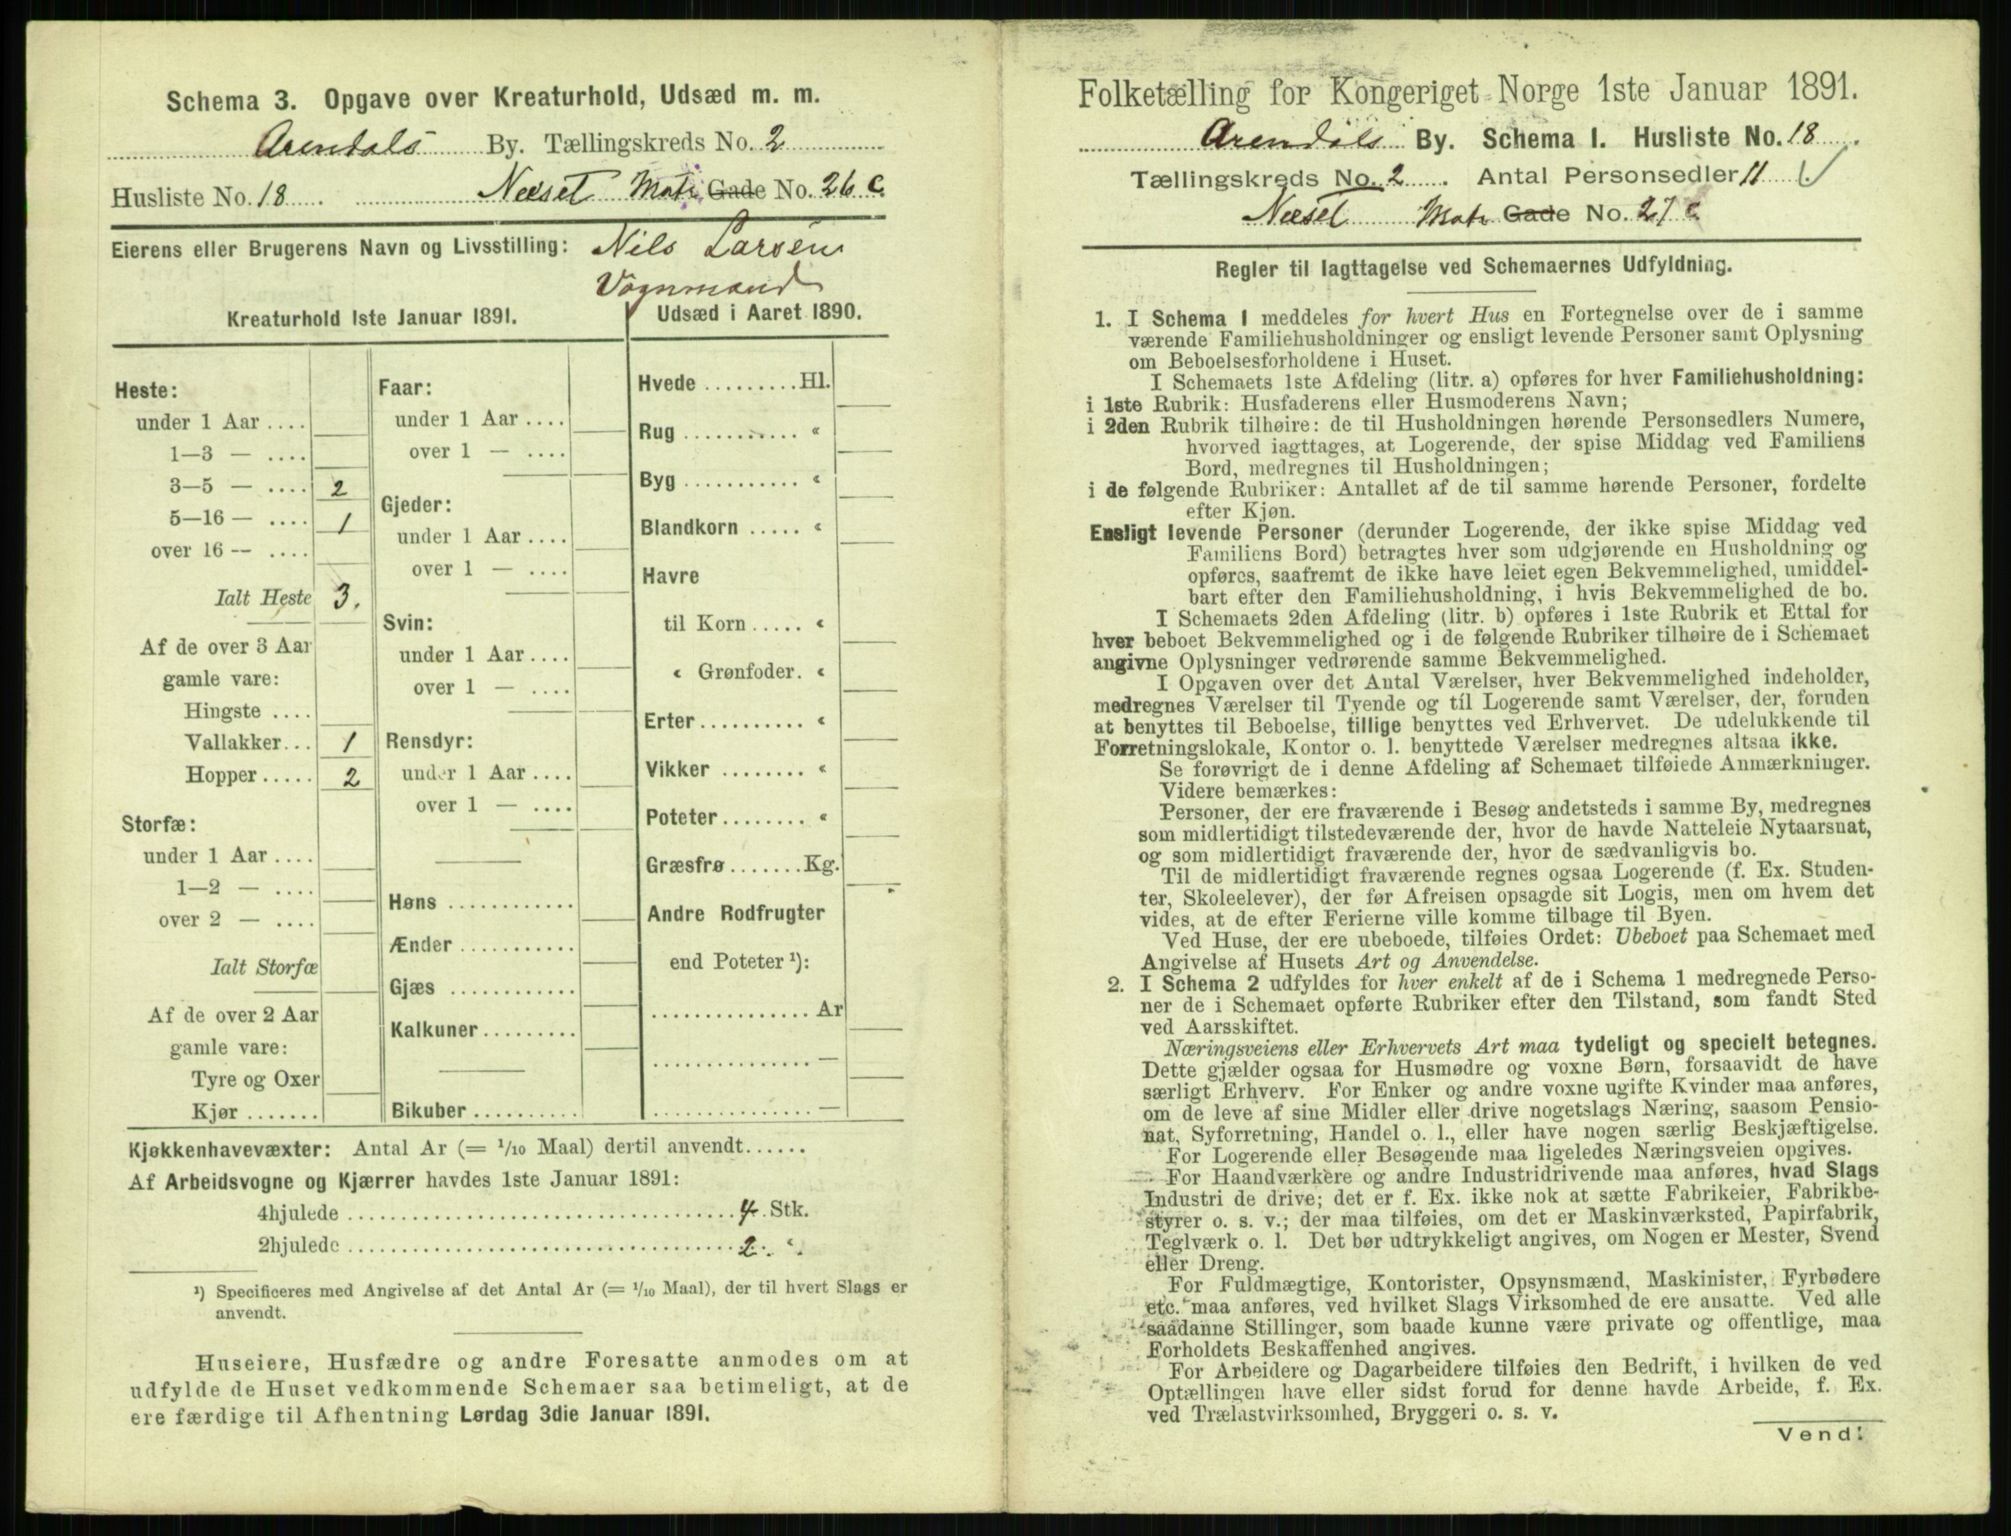 Schema 3. Opgave over Kreaturhold, Udsæd m. m.
Arendals By. Tællingskreds No. 2
Husliste No. 18 Næset Matr Gade No. 26 c.
Eierens eller Brugerens Navn og Livsstilling: Nils Larsen
Vognmand
Kreaturhold 1ste Januar 1891.
Heste:
under 1 Aar ....
1—3 — ....
3—5 — .... 2
5—16 — .... 1
over 16 — ....
Ialt Heste 3.
Af de over 3 Aar
gamle vare:
Hingste ....
Vallakker... 1
Hopper..... 2
Storfæ:
under 1 Aar ....
1—2 — ....
over 2 — ....
Ialt Storfæ
Af de over 2 Aar
gamle vare:
Tyre og Oxer
Kjør .......
Faar:
under 1 Aar ....
over 1 — ....
Gjeder:
under 1 Aar ....
over 1 — ....
Svin:
under 1 Aar ....
over 1 — ....
Rensdyr:
under 1 Aar ....
over 1 — ....
Høns ............
Ænder ...........
Gjæs ............
Kalkuner.........
Bikuber ..........
Udsæd i Aaret 1890.
Hvede .........Hl.
Rug ........... «
Byg ........... «
Blandkorn ..... «
Havre
til Korn..... «
« Grønfoder. «
Erter.......... «
Vikker ........ «
Poteter........ «
Græsfrø.......Kg.
Andre Rodfrugter
end Poteter ¹):
............... Ar
............... —
............... —
Kjøkkenhavevæxter: Antal Ar (= 1/10 Maal) dertil anvendt......
Af Arbeidsvogne og Kjærrer havdes 1ste Januar 1891:
4hjulede ..................................... 4 Stk.
2hjulede ..................................... 2. «.
¹) Specificeres med Angivelse af det Antal Ar (= 1/10 Maal), der til hvert Slags er
anvendt.
Huseiere, Husfædre og andre Foresatte anmodes om at
udfylde de Huset vedkommende Schemaer saa betimeligt, at de
ere færdige til Afhentning Lørdag 3die Januar 1891.
Folketælling for Kongeriget Norge 1ste Januar 1891.
Arendals By. Schema I. Husliste No. 18
Tællingskreds No. 2 . Antal Personsedler 11 .
Næset Matr Gade No. 27 c
Regler til Iagttagelse ved Schemaernes Udfyldning.
1. I Schema 1 meddeles for hvert Hus en Fortegnelse over de i samme
værende Familiehusholdninger og ensligt levende Personer samt Oplysning
om Beboelsesforholdene i Huset.
I Schemaets 1ste Afdeling (litr. a) opføres for hver Familiehusholdning:
i 1ste Rubrik: Husfaderens eller Husmoderens Navn;
i 2den Rubrik tilhøire: de til Husholdningen hørende Personsedlers Numere,
hvorved iagttages, at Logerende, der spise Middag ved Familiens
Bord, medregnes til Husholdningen;
i de følgende Rubriker: Antallet af de til samme hørende Personer, fordelte
efter Kjøn.
Ensligt levende Personer (derunder Logerende, der ikke spise Middag ved
Familiens Bord) betragtes hver som udgjørende en Husholdning og
opføres, saafremt de ikke have leiet egen Bekvemmelighed, umiddel-
bart efter den Familiehusholdning, i hvis Bekvemmelighed de bo.
I Schemaets 2den Afdeling (litr. b) opføres i 1ste Rubrik et Ettal for
hver beboet Bekvemmelighed og i de følgende Rubriker tilhøire de i Schemaet
angivne Oplysninger vedrørende samme Bekvemmelighed.
I Opgaven over det Antal Værelser, hver Bekvemmelighed indeholder,
medregnes Værelser til Tyende og til Logerende samt Værelser, der, foruden
at benyttes til Beboelse, tillige benyttes ved Erhvervet. De udelukkende til
Forretningslokale, Kontor o. l. benyttede Værelser medregnes altsaa ikke.
Se forøvrigt de i denne Afdeling af Schemaet tilføiede Anmærkninger.
Videre bemærkes:
Personer, der ere fraværende i Besøg andetsteds i samme By, medregnes
som midlertidigt tilstedeværende der, hvor de havde Natteleie Nytaarsnat,
og som midlertidigt fraværende der, hvor de sædvanligvis bo.
Til de midlertidigt fraværende regnes ogsaa Logerende (f. Ex. Studen-
ter, Skoleelever), der før Afreisen opsagde sit Logis, men om hvem det
vides, at de efter Ferierne ville komme tilbage til Byen.
Ved Huse, der ere ubeboede, tilføies Ordet: Ubeboet paa Schemaet med
Angivelse af Husets Art og Anvendelse.
2. I Schema 2 udfyldes for hver enkelt af de i Schema 1 medregnede Perso-
ner de i Schemaet opførte Rubriker efter den Tilstand, som fandt Sted
ved Aarsskiftet.
Næringsveiens eller Erhvervets Art maa tydeligt og specielt betegnes.
Dette gjælder ogsaa for Husmødre og voxne Børn, forsaavidt de have
særligt Erhverv. For Enker og andre voxne ugifte Kvinder maa anføres,
om de leve af sine Midler eller drive nogetslags Næring, saasom Pensio-
nat, Syforretning, Handel o. l., eller have nogen særlig Beskjæftigelse.
For Logerende eller Besøgende maa ligeledes Næringsveien opgives.
For Haandværkere og andre Industridrivende maa anføres, hvad Slags
Industri de drive; det er f. Ex. ikke nok at sætte Fabrikeier, Fabrikbe-
styrer o. s. v.; der maa tilføies, om det er Maskinværksted, Papirfabrik,
Teglværk o. l. Det bør udtrykkeligt angives, om Nogen er Mester, Svend
eller Dreng.
For Fuldmægtige, Kontorister, Opsynsmænd, Maskinister, Fyrbødere
etc. maa anføres, ved hvilket Slags Virksomhed de ere ansatte. Ved alle
saadanne Stillinger, som baade kunne være private og offentlige, maa
Forholdets Beskaffenhed angives.
For Arbeidere og Dagarbeidere tilføies den Bedrift, i hvilken de ved
Optællingen have eller sidst forud for denne havde Arbeide, f. Ex.
ved Trælastvirksomhed, Bryggeri o. s. v.
Vend!